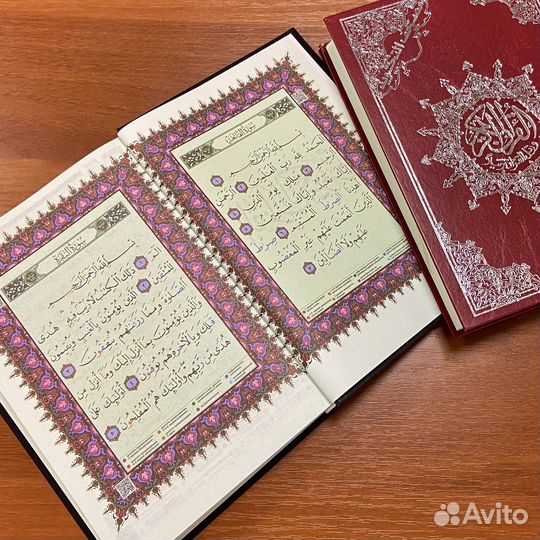 سُورَةُ الفَاتِحَةِ
بِسْمِ اللَّهِ الرَّحْمَٰنِ الرَّحِيمِ
الْحَمْدُ لِلَّهِ رَبِّ الْعَالَمِينَ ٢ الرَّحْمَٰنِ
الرَّحِيمِ ٣ مَٰلِكِ يَوْمِ الدِّينِ ٤
إِيَّاكَ نَعْبُدُ وَإِيَّاكَ نَسْتَعِينُ ٥
اهْدِنَا الصِّرَٰطَ الْمُسْتَقِيمَ ٦ صِرَٰطَ الَّذِينَ
أَنْعَمْتَ عَلَيْهِمْ غَيْرِ الْمَغْضُوبِ
عَلَيْهِمْ وَلَا الضَّالِّينَ ٧
سُورَةُ البَقَرَةِ
بِسْمِ اللَّهِ الرَّحْمَٰنِ الرَّحِيمِ
الم ١ ذَٰلِكَ الْكِتَٰبُ لَا رَيْبَ فِيهِ هُدًى
لِلْمُتَّقِينَ ٢ الَّذِينَ يُؤْمِنُونَ بِالْغَيْبِ وَيُقِيمُونَ
الصَّلَوٰةَ وَمِمَّا رَزَقْنَٰهُمْ يُنفِقُونَ ٣
وَالَّذِينَ يُؤْمِنُونَ بِمَا أُنزِلَ إِلَيْكَ وَمَا أُنزِلَ مِن
قَبْلِكَ وَبِالْآخِرَةِ هُمْ يُوقِنُونَ ٤ أُولَٰئِكَ عَلَىٰ
هُدًى مِّن رَّبِّهِمْ وَأُولَٰئِكَ هُمُ الْمُفْلِحُونَ ٥
القرآن الكريم
Avito